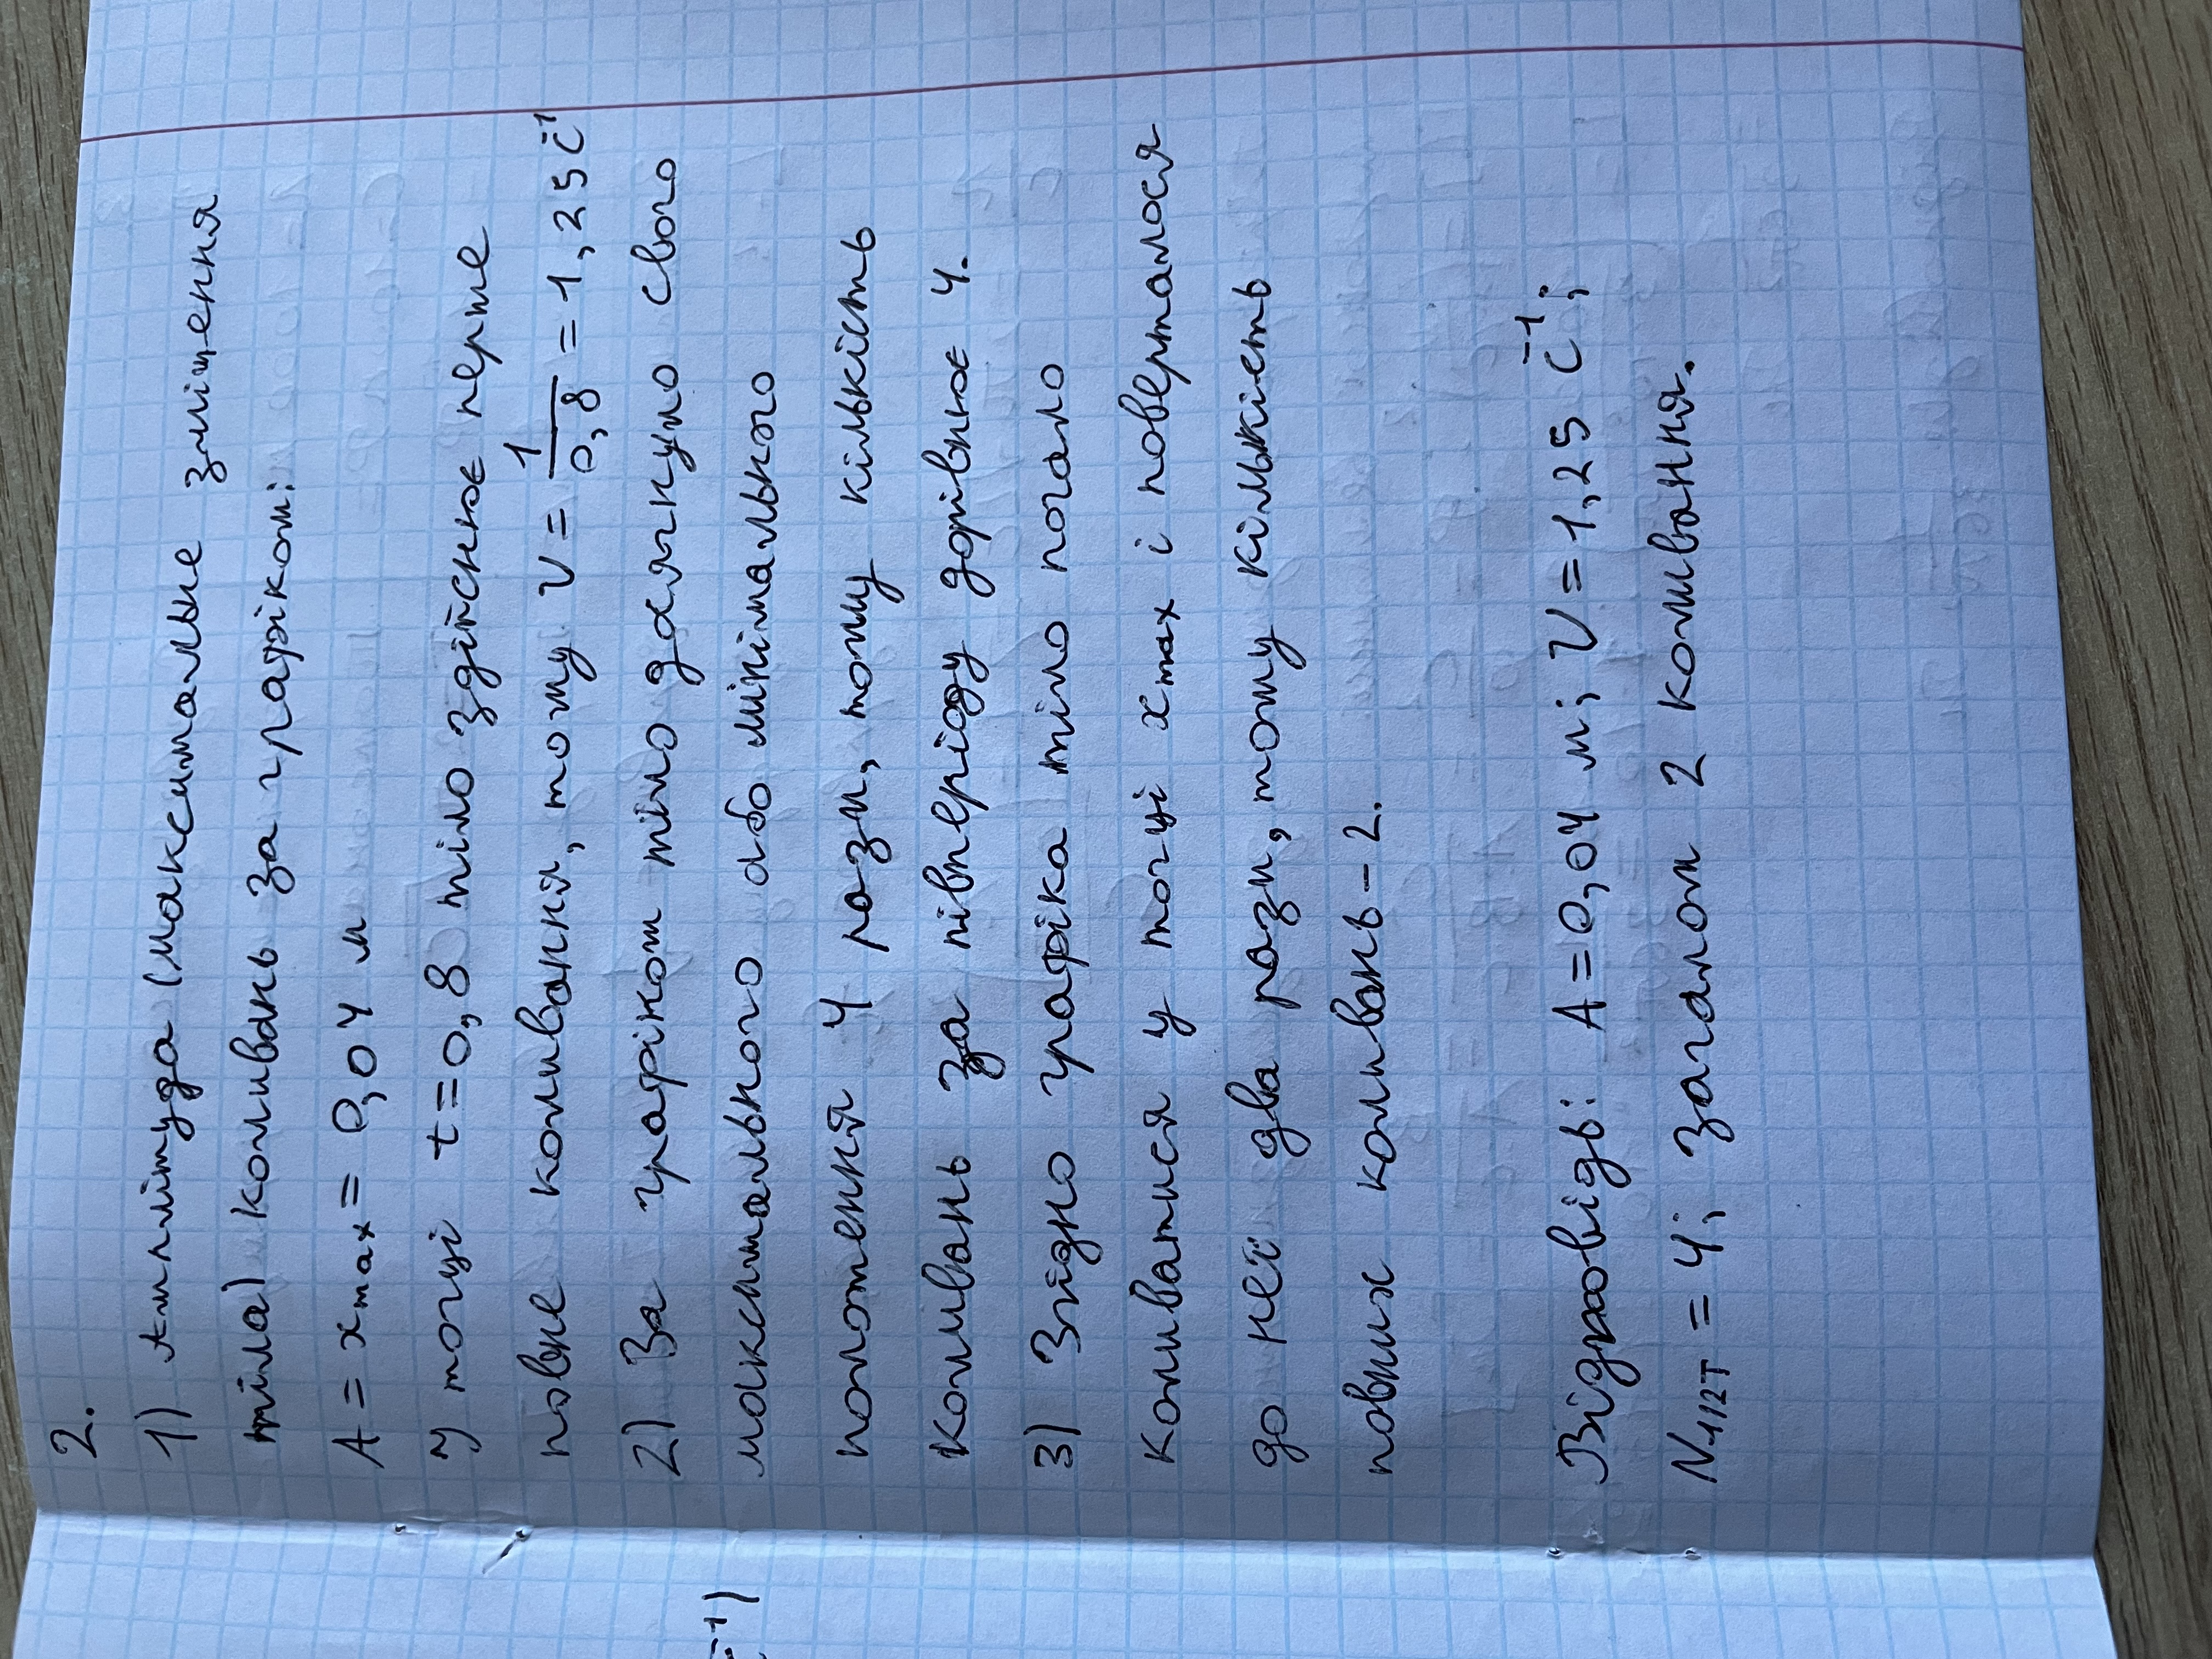 2.
1) Амплітуда (максимальне зміщення
тіла) коливань за графіком:
A = x max = 0,04 м
У точці t = 0,8 тіло здійснює перше
повне коливання, тому ν = 1/0,8 = 1,25 с⁻¹
2) За графіком тіло досягнуло свого
максимального або мінімального
положення 4 рази, тому кількість
коливань за півперіоду дорівнює 4.
3) Згідно графіка тіло почало
коливатися у точці x max і поверталося
до неї два рази, тому кількість
повних коливань – 2.
Відповідь: A = 0,04 м; ν = 1,25 с⁻¹;
N 1/2T = 4; загалом 2 коливання.
с⁻¹)